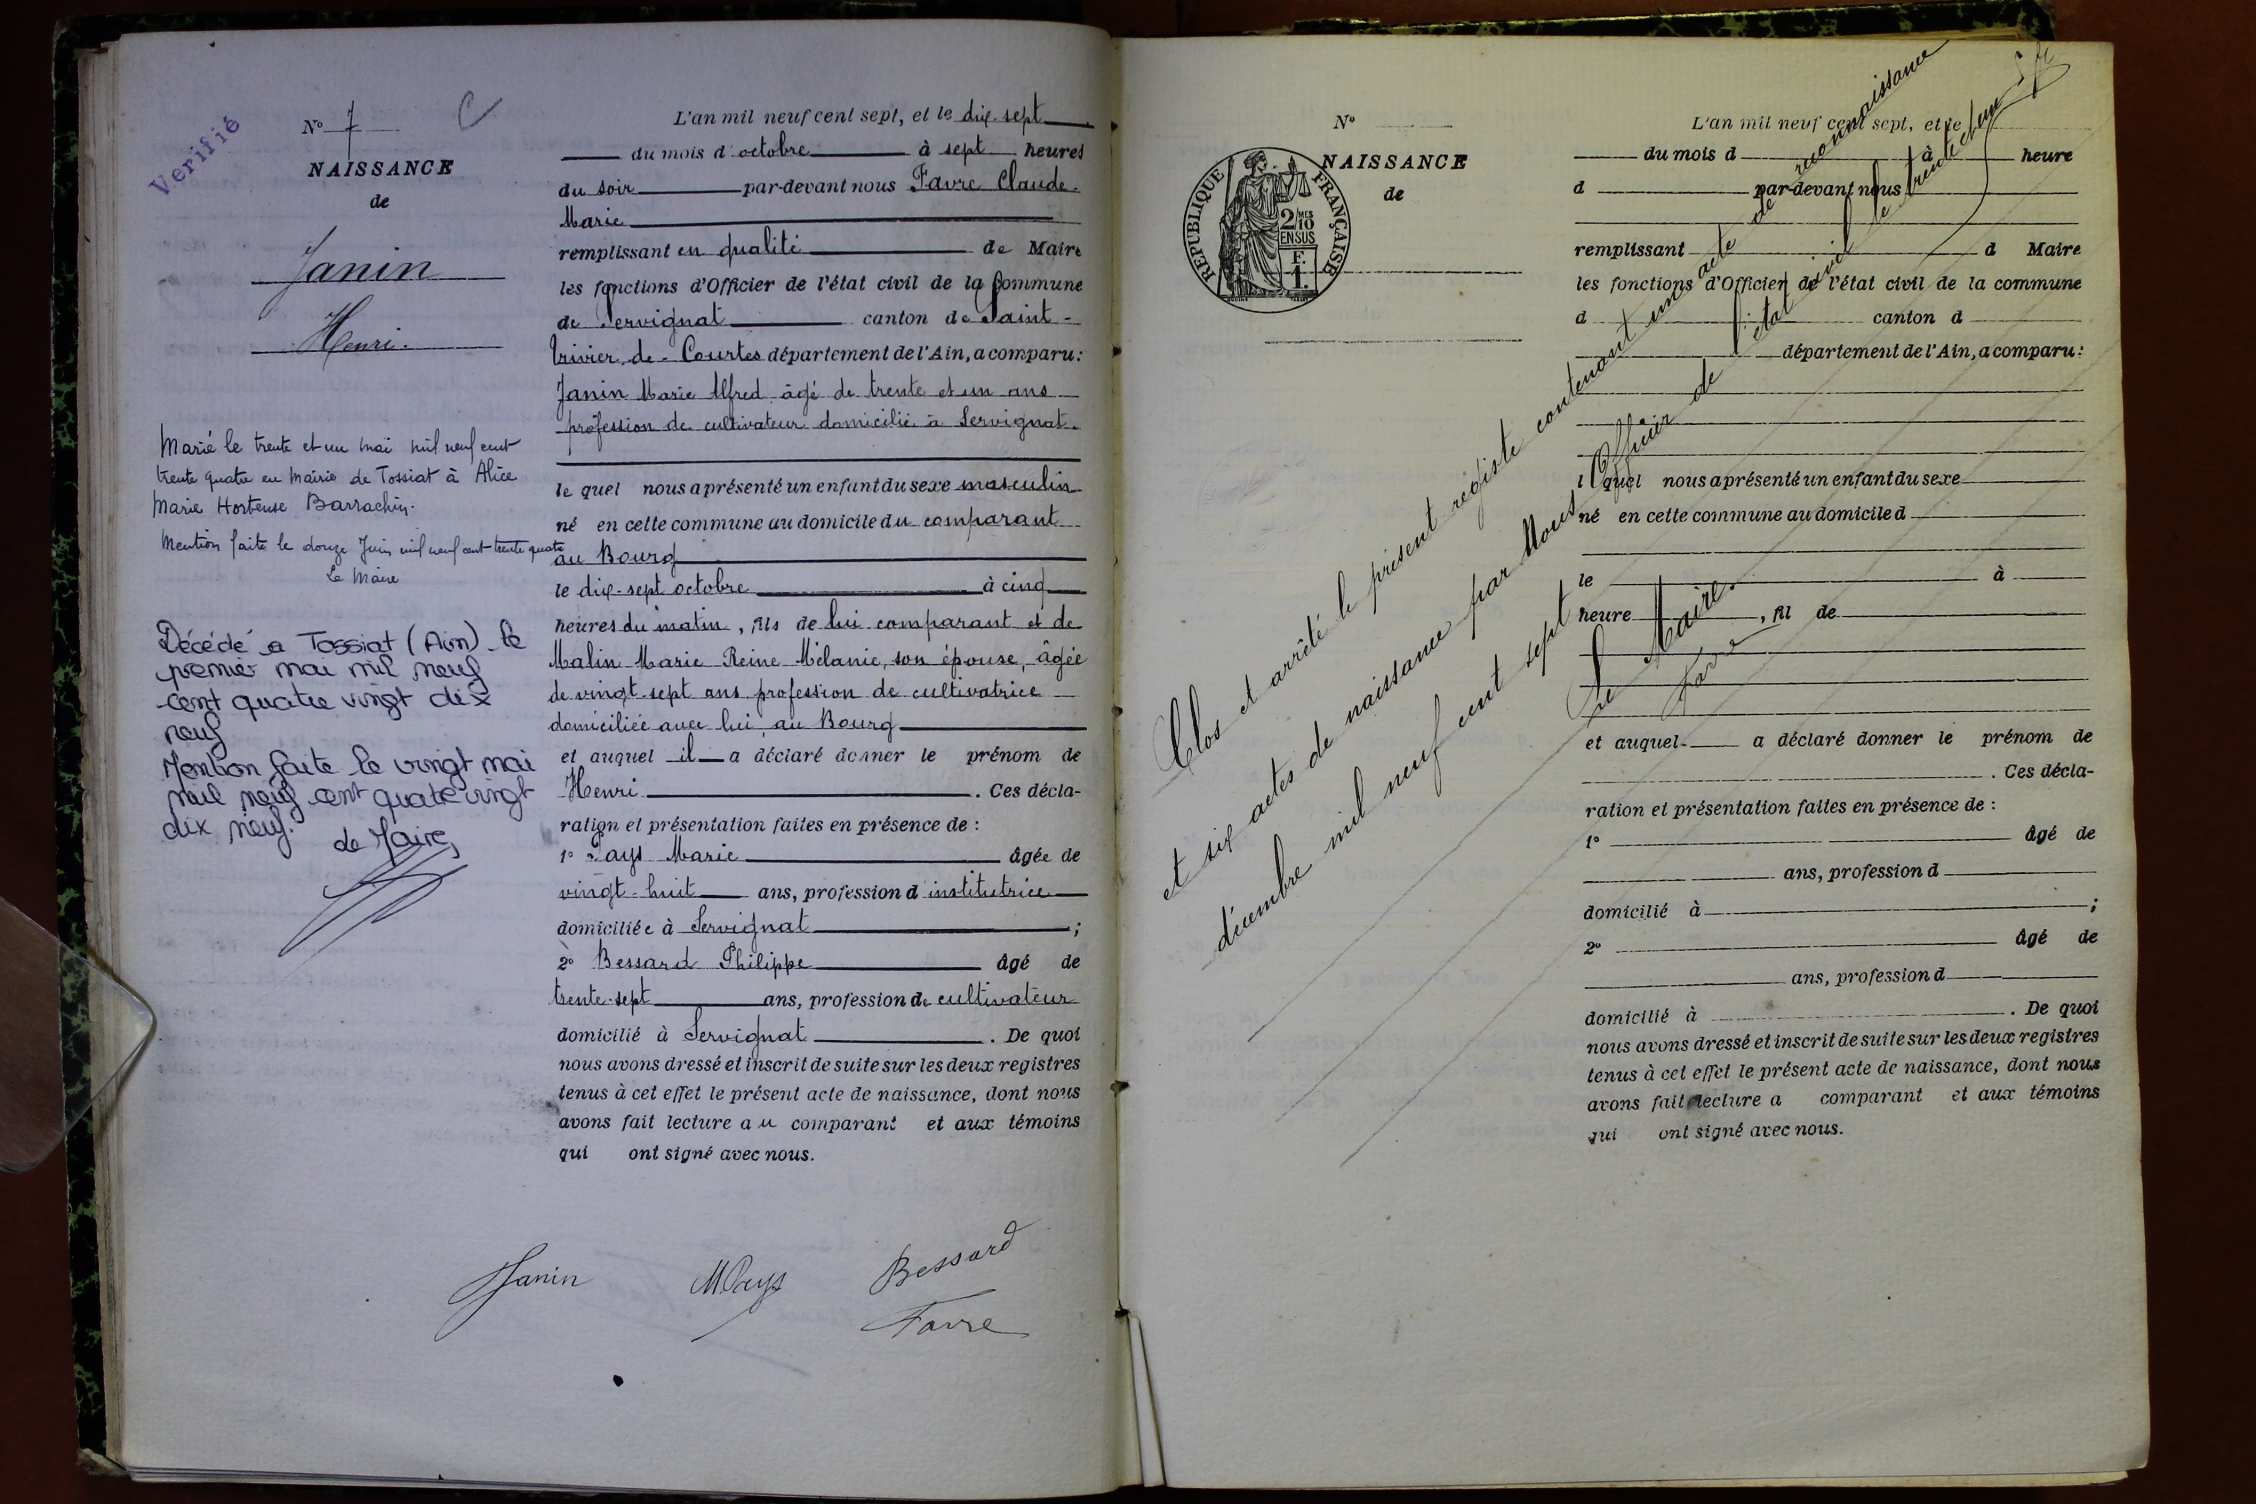 Verifié
N° 7
NAISSANCE
de
Janin
Henri.
Marié le trente et un mai mil neuf cent
trente quatre en mairie de Tossiat à Alice
Marie Hortense Barrachin.
Mention faite le douze Juin mil neuf cent trente quatre
Le Maire
Décédé à Tossiat (Ain) le
premier mai mil neuf
cent quatre vingt dix
neuf
Mention faite le vingt mai
mil neuf cent quatre vingt
dix neuf.
Le Maire,
L'an mil neuf cent sept, et le dix-sept
du mois d'octobre à sept heures
du soir par-devant nous Favre Claude-
Marie
remplissant en qualité de Maire
les fonctions d'Officier de l'état civil de la Commune
de Servignat canton de Saint-
Trivier-de-Courtes département de l'Ain, a comparu:
Janin Marie Alfred âgé de trente et un ans
profession de cultivateur domicilié à Servignat.
le quel nous a présenté un enfant du sexe masculin
né en cette commune au domicile du comparant
au Bourg
le dix-sept octobre à cinq
heures du matin, fils de lui comparant et de
Malin Marie Reine Mélanie, son épouse, âgée
de vingt-sept ans profession de cultivatrice
domiciliée avec lui, au Bourg
et auquel il a déclaré donner le prénom de
Henri. Ces décla-
ration et présentation faites en présence de :
1° Pays Marie âgée de
vingt-huit ans, profession d'institutrice
domiciliée à Servignat ;
2° Bessard Philippe âgé de
trente-sept ans, profession de cultivateur
domicilié à Servignat. De quoi
nous avons dressé et inscrit de suite sur les deux registres
tenus à cet effet le présent acte de naissance, dont nous
avons fait lecture au comparant et aux témoins
qui ont signé avec nous.
Janin MPays Bessard
Favre
N°
NAISSANCE
de
REPUBLIQUE FRANÇAISE
2/10 MES
EN SUS
F.
1.
L'an mil neuf cent sept, et le
du mois d à heure
d par-devant nous
remplissant d Maire
les fonctions d'Officier de l'état civil de la commune
d canton d
département de l'Ain, a comparu:
l quel nous a présenté un enfant du sexe
né en cette commune au domicile d
le à
heure , fil de
et auquel a déclaré donner le prénom de
. Ces décla-
ration et présentation faites en présence de :
1° âgé de
ans, profession d
domicilié à ;
2° âgé de
ans, profession d
domicilié à . De quoi
nous avons dressé et inscrit de suite sur les deux registres
tenus à cet effet le présent acte de naissance, dont nous
avons fait lecture a comparant et aux témoins
qui ont signé avec nous.
Clos et arrêté le présent registre contenant un acte de reconnaissance
et six actes de naissance par Nous Officier de l'état civil le trente et un
décembre mil neuf cent sept
Le Maire.
Favre